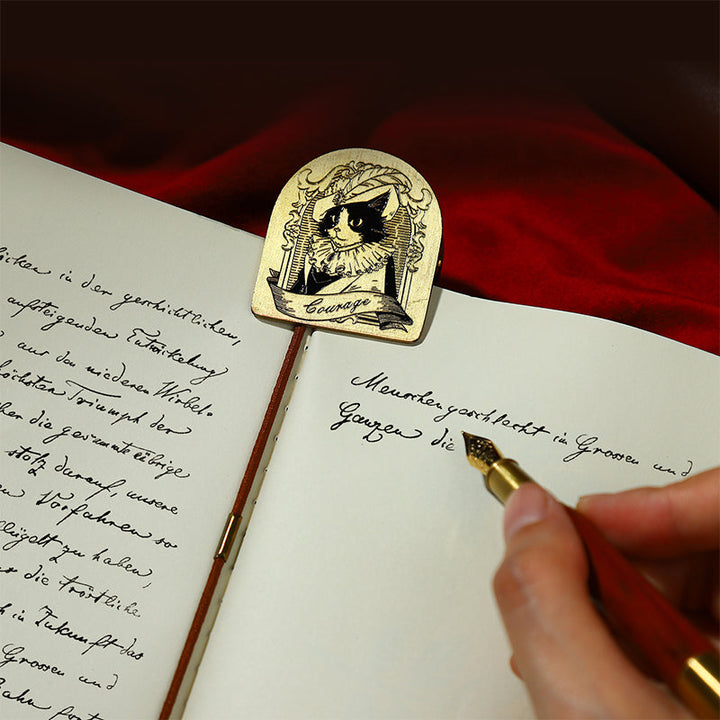 in der geschichtlichen,
aufsteigenden Entwickelung
aus den niederen Wirbel-
höchsten Triumph der
die gesammte übrige
stolz darauf, unsere
Vorfahren so
flügelt zu haben,
die tröstliche
in Zukunft das
Grossen und
Bahn
Courage
Menschengeschlecht im Grossen und
Ganzen die